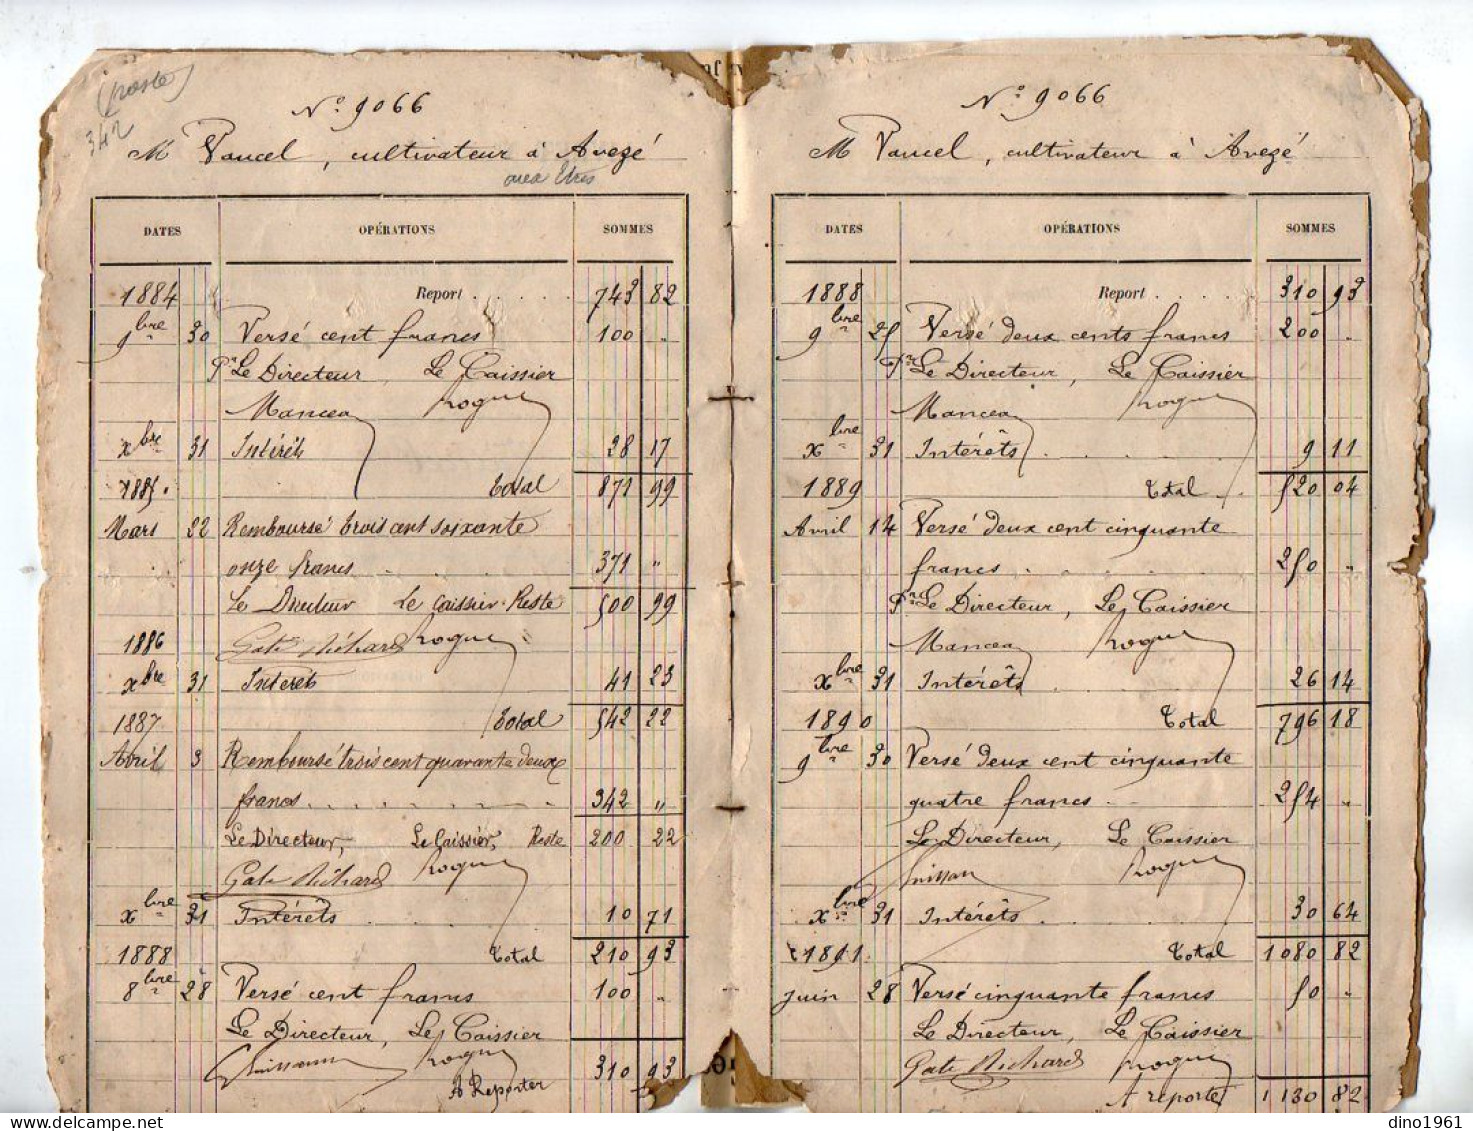 (reste)
342
N° 9066
M Vancel, cultivateur à Avezé
aux Etres
DATES OPÉRATIONS SOMMES
1884 Report . . . . . 743 82
9bre 30 Versé cent francs 100 „
Pr Le Directeur, Le Caissier
Manceau Rogue
Xbre 31 Intérêts 28 17
1885. Total 871 99
Mars 22 Remboursé trois cent soixante
onze francs . . . 371 „
Le Directeur Le Caissier Reste 500 99
1886 Gate Richard Rogue
Xbre 31 Intérêts 41 23
1887 Total 542 22
Avril 3 Remboursé trois cent quarante deux
francs . . . . . . . 342 „
Le Directeur, Le Caissier, Reste 200 22
Gate Richard Rogue
Xbre 31 Intérêts . . . . 10 71
1888 Total 210 93
8bre 28 Versé cent francs 100 „
Le Directeur, Le Caissier
Rogue 310 93
A Reporter
N° 9066
M Vancel, cultivateur à Avezé
DATES OPÉRATIONS SOMMES
1888 Report . . . . . 310 93
9bre 25 Versé deux cents francs 200 „
Pr Le Directeur, Le Caissier
Manceau Rogue
Xbre 31 Intérêts . . . . . 9 11
1889 Total . . 520 04
Avril 14 Versé deux cent cinquante
francs . . . . . 250 „
Pr Le Directeur, Le Caissier
Manceau Rogue
Xbre 31 Intérêts . . . . 26 14
1890 Total 796 18
9bre 30 Versé deux cent cinquante
quatre francs . . 254 „
Le Directeur, Le Caissier
Rogue
Xbre 31 Intérêts . . . . 30 64
1891 Total 1080 82
Juin 28 Versé cinquante francs 50 „
Le Directeur, Le Caissier
Gate Richard Rogue
A reporter 1130 82
dino1961